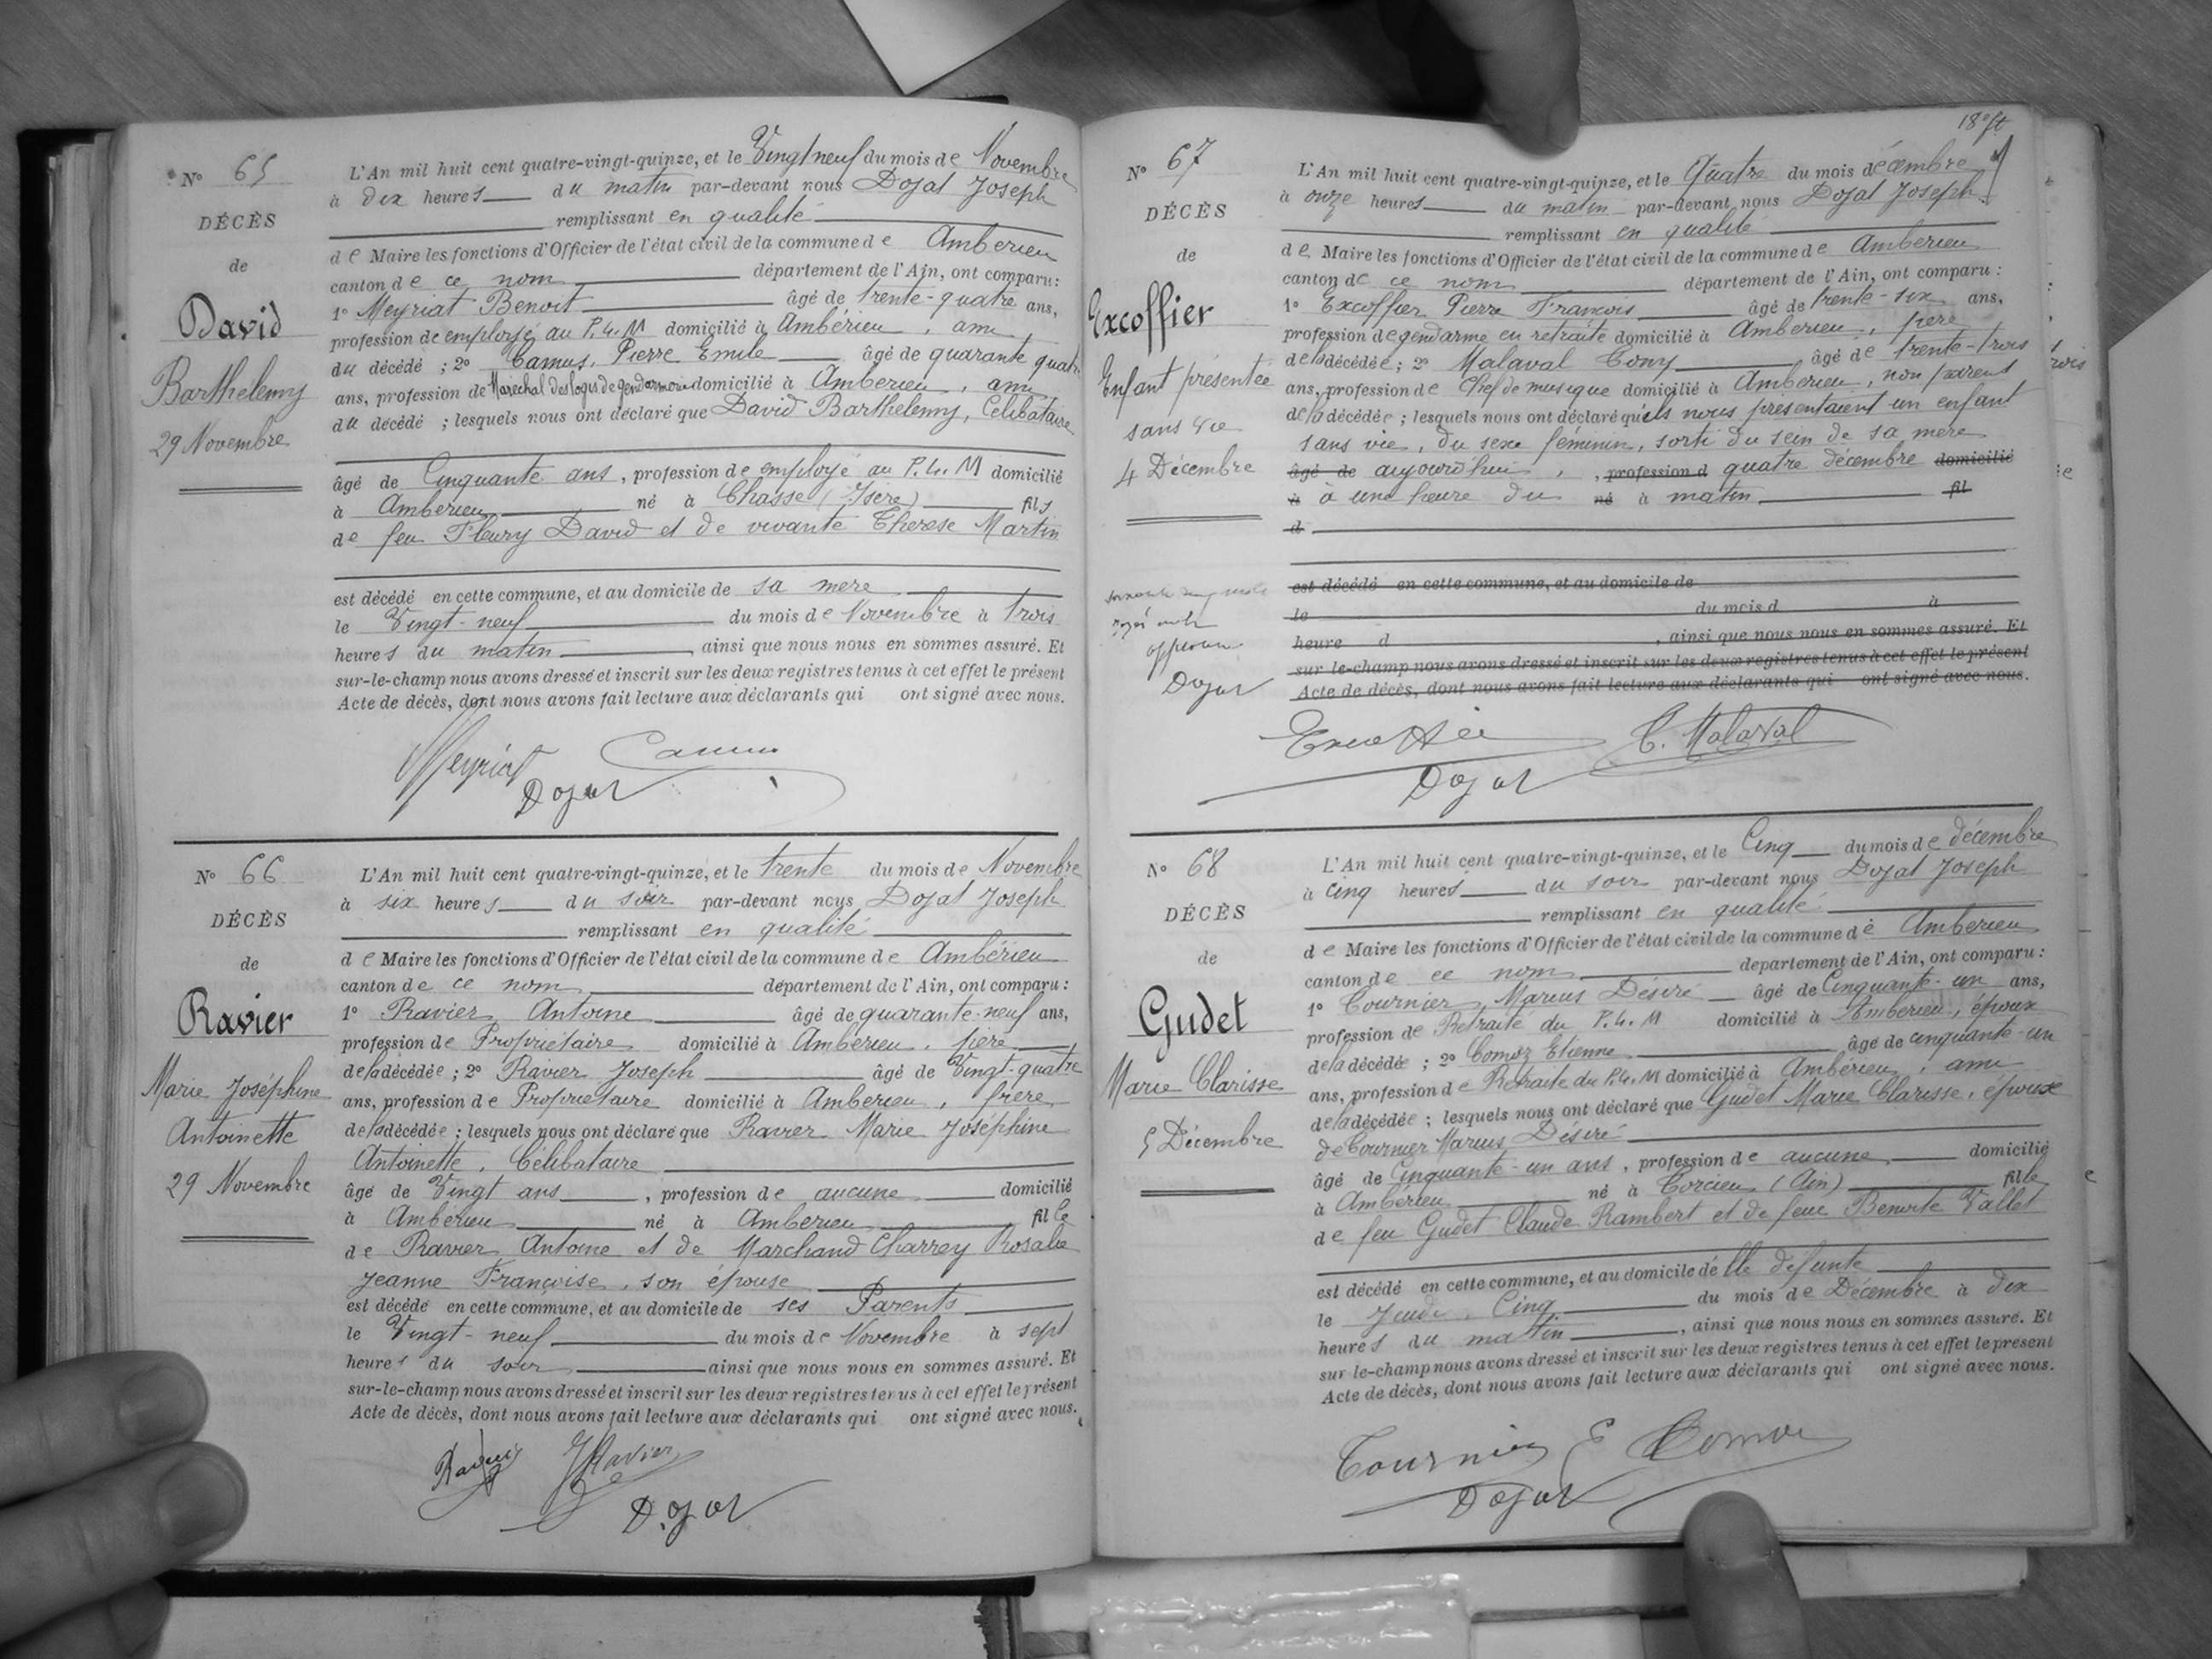 N° 65
DÉCÈS
de
David
Barthelemy
29 Novembre
L'An mil huit cent quatre-vingt-quinze, et le Vingt neuf du mois de Novembre
à dix heures du matin par-devant nous Dojat Joseph
remplissant en qualité
de Maire les fonctions d'Officier de l'état civil de la commune de Amberieu
canton de ce nom département de l'Ain, ont comparu:
1° Meyriat Benoit âgé de trente-quatre ans,
profession de employé au P.L.M domicilié à Ambérieu, ami
du décédé ; 2° Camus, Pierre Emile âgé de quarante quatre
ans, profession de Marechal des logis de gendarmerie domicilié à Amberieu, ami
du décédé ; lesquels nous ont déclaré que David Barthelemy, Célibataire
âgé de Cinquante ans, profession de employé au P.L.M domicilié
à Amberieu né à Chasse (Isère) fils
de feu Fleury David et de vivante Therese Martin
est décédé en cette commune, et au domicile de sa mere
le Vingt-neuf du mois de Novembre à trois
heures du matin, ainsi que nous nous en sommes assuré. Et
sur-le-champ nous avons dressé et inscrit sur les deux registres tenus à cet effet le présent
Acte de décès, dont nous avons fait lecture aux déclarants qui ont signé avec nous.
Meyriat Camus
Dojat
N° 66
DÉCÈS
de
Ravier
Marie Joséphine
Antoinette
29 Novembre
L'An mil huit cent quatre-vingt-quinze, et le trente du mois de Novembre
à six heures du soir par-devant nous Dojat Joseph
remplissant en qualité
de Maire les fonctions d'Officier de l'état civil de la commune de Ambérieu
canton de ce nom département de l'Ain, ont comparu :
1° Ravier Antoine âgé de quarante-neuf ans,
profession de Propriétaire domicilié à Amberieu, père
de la décédée ; 2° Ravier Joseph âgé de Vingt-quatre
ans, profession de Proprietaire domicilié à Amberieu, frere
de la décédée ; lesquels nous ont déclaré que Ravier Marie Joséphine
Antoinette, Célibataire
âgé de Vingt ans, profession de aucune domicilié
à Amberieu né à Amberieu fille
de Ravier Antoine et de Marchand Charrey Rosalie
Jeanne Françoise, son épouse
est décédé en cette commune, et au domicile de ses Parents
le Vingt-neuf du mois de Novembre à sept
heures du soir ainsi que nous nous en sommes assuré. Et
sur-le-champ nous avons dressé et inscrit sur les deux registres tenus à cet effet le présent
Acte de décès, dont nous avons fait lecture aux déclarants qui ont signé avec nous.
Ravier JRavier
Dojat
N° 67
DÉCÈS
de
Excoffier
Enfant présentée
sans vie
4 Décembre
L'An mil huit cent quatre-vingt-quinze, et le Quatre du mois décembre
à onze heures du matin par-devant nous Dojat Joseph
remplissant en qualité
de Maire les fonctions d'Officier de l'état civil de la commune de Amberieu
canton de ce nom département de l'Ain, ont comparu :
1° Excoffier Pierre François âgé de trente-six ans,
profession de gendarme en retraite domicilié à Amberieu, père
de la décédée ; 2° Malaval Tony âgé de trente-trois
ans, profession de Chef de musique domicilié à Amberieu, non parent
de la décédée ; lesquels nous ont déclaré qu'ils nous présentaient un enfant
sans vie, du sexe féminin, sorti du sein de sa mere
âgé de aujourd'hui, profession d quatre décembre domicilié
à à une heure du né à matin fil
d
est décédé en cette commune, et au domicile de
le du mois d à
heure d, ainsi que nous nous en sommes assuré. Et
sur-le-champ nous avons dressé et inscrit sur les deux registres tenus à cet effet le présent
Acte de décès, dont nous avons fait lecture aux déclarants qui ont signé avec nous.
Dojat
Excoffier C. Malaval
Dojat
N° 68
DÉCÈS
de
Gudet
Marie Clarisse
5 Décembre
L'An mil huit cent quatre-vingt-quinze, et le Cinq du mois de décembre
à cinq heures du soir par-devant nous Dojat Joseph
remplissant en qualité
de Maire les fonctions d'Officier de l'état civil de la commune de Amberieu
canton de ce nom département de l'Ain, ont comparu :
1° Tournier Marius Désiré âgé de Cinquante-un ans,
profession de Retraité du P.L.M domicilié à Amberieu, époux
de la décédée ; 2° Etienne âgé de cinquante-un
ans, profession de Retraite du P.L.M domicilié à Ambérieu, ami
de la décédée ; lesquels nous ont déclaré que Gudet Marie Clarisse, épouse
de Tournier Marius Désiré
âgé de Cinquante-un ans, profession de aucune domicilié
à Ambérieu né à Torcieu (Ain) fille
de feu Gudet Claude Rambert et de feue Benoite Vallet
est décédé en cette commune, et au domicile de lle défunte
le Jeudi, Cinq du mois de Décembre à dix
heures du matin, ainsi que nous nous en sommes assuré. Et
sur-le-champ nous avons dressé et inscrit sur les deux registres tenus à cet effet le présent
Acte de décès, dont nous avons fait lecture aux déclarants qui ont signé avec nous.
Tournier E
Dojat